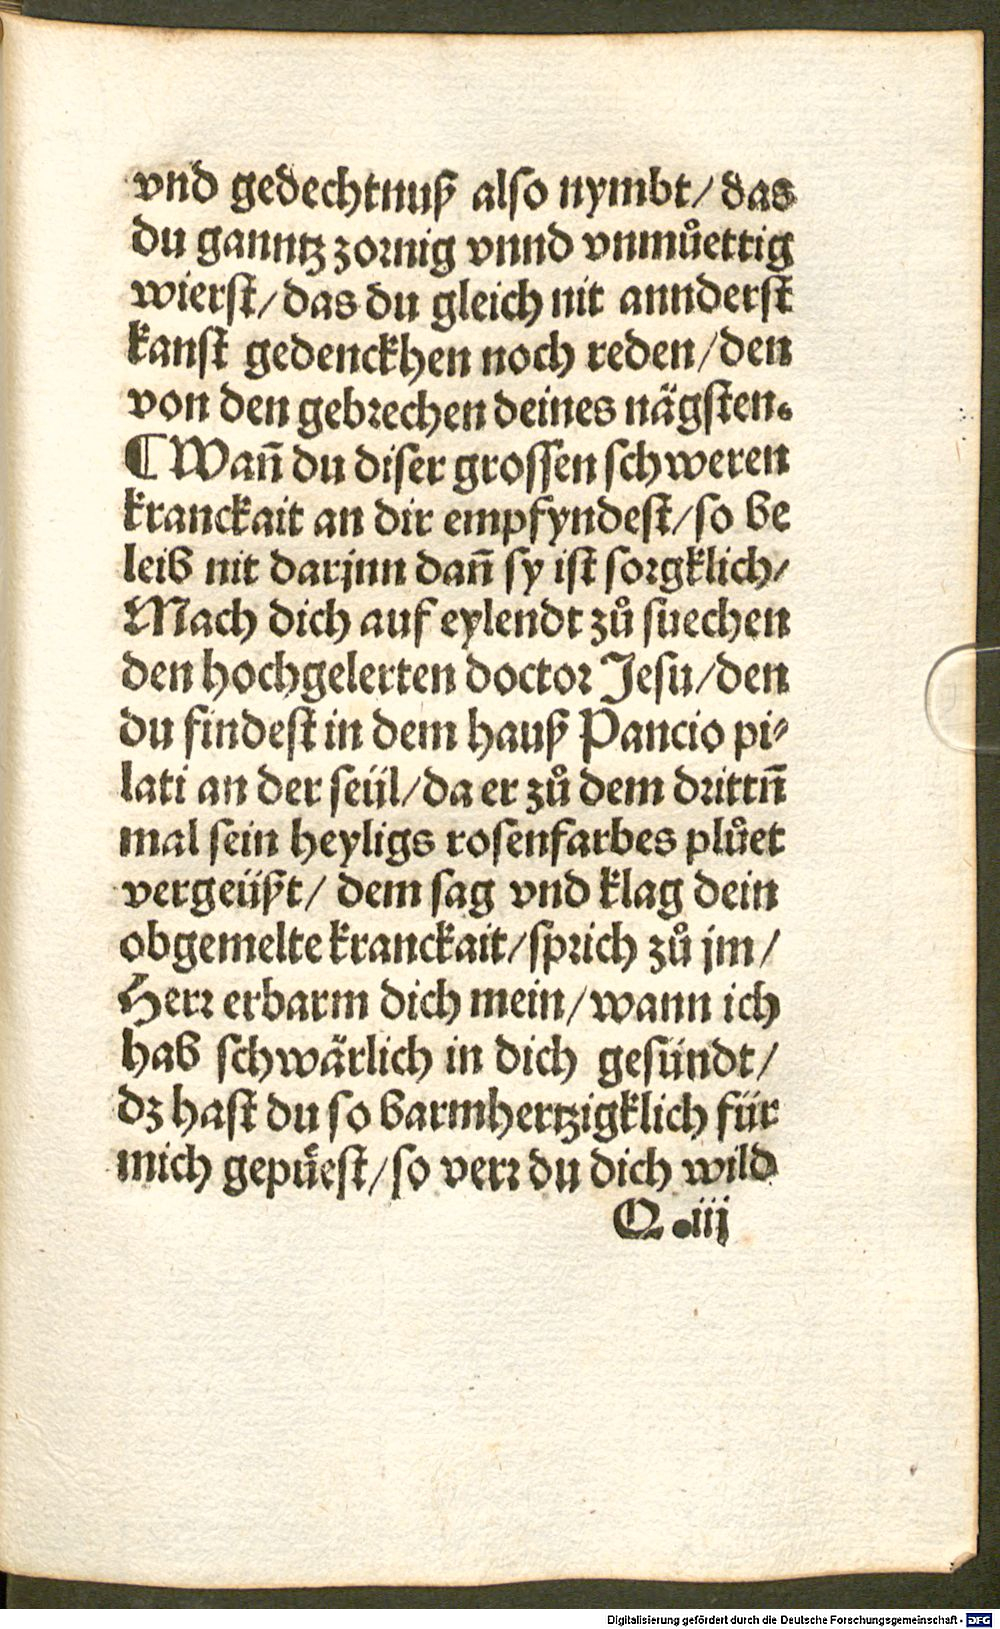 vnd gedechtnuß also nymbt/ das
du ganntz zornig vnnd vnmůettig
wierst/ das du gleich nit annderst
kanst gedenckhen noch reden/ den
von den gebrechen deines nägsten.
¶ Wañ du diser grossen schweren
kranckait an dir empfyndest/ so be
leib nit darjnn dañ sy ist sorgklich/
Mach dich auf eylendt zů suechen
den hochgelerten doctor Jesu/ den
du findest in dem hauß Pancio pi-
lati an der seül/ da er zů dem drittñ
mal sein heyligs rosenfarbes plůet
vergeüßt/ dem sag vnd klag dein
obgemelte kranckait/ sprich zů jm/
Herr erbarm dich mein/ wann ich
hab schwärlich in dich gesündt/
dz hast du so barmhertzigklich für
mich gepüest/ so verr du dich wild
Q .iij
Digitalisierung gefördert durch die Deutsche Forschungsgemeinschaft - DFG